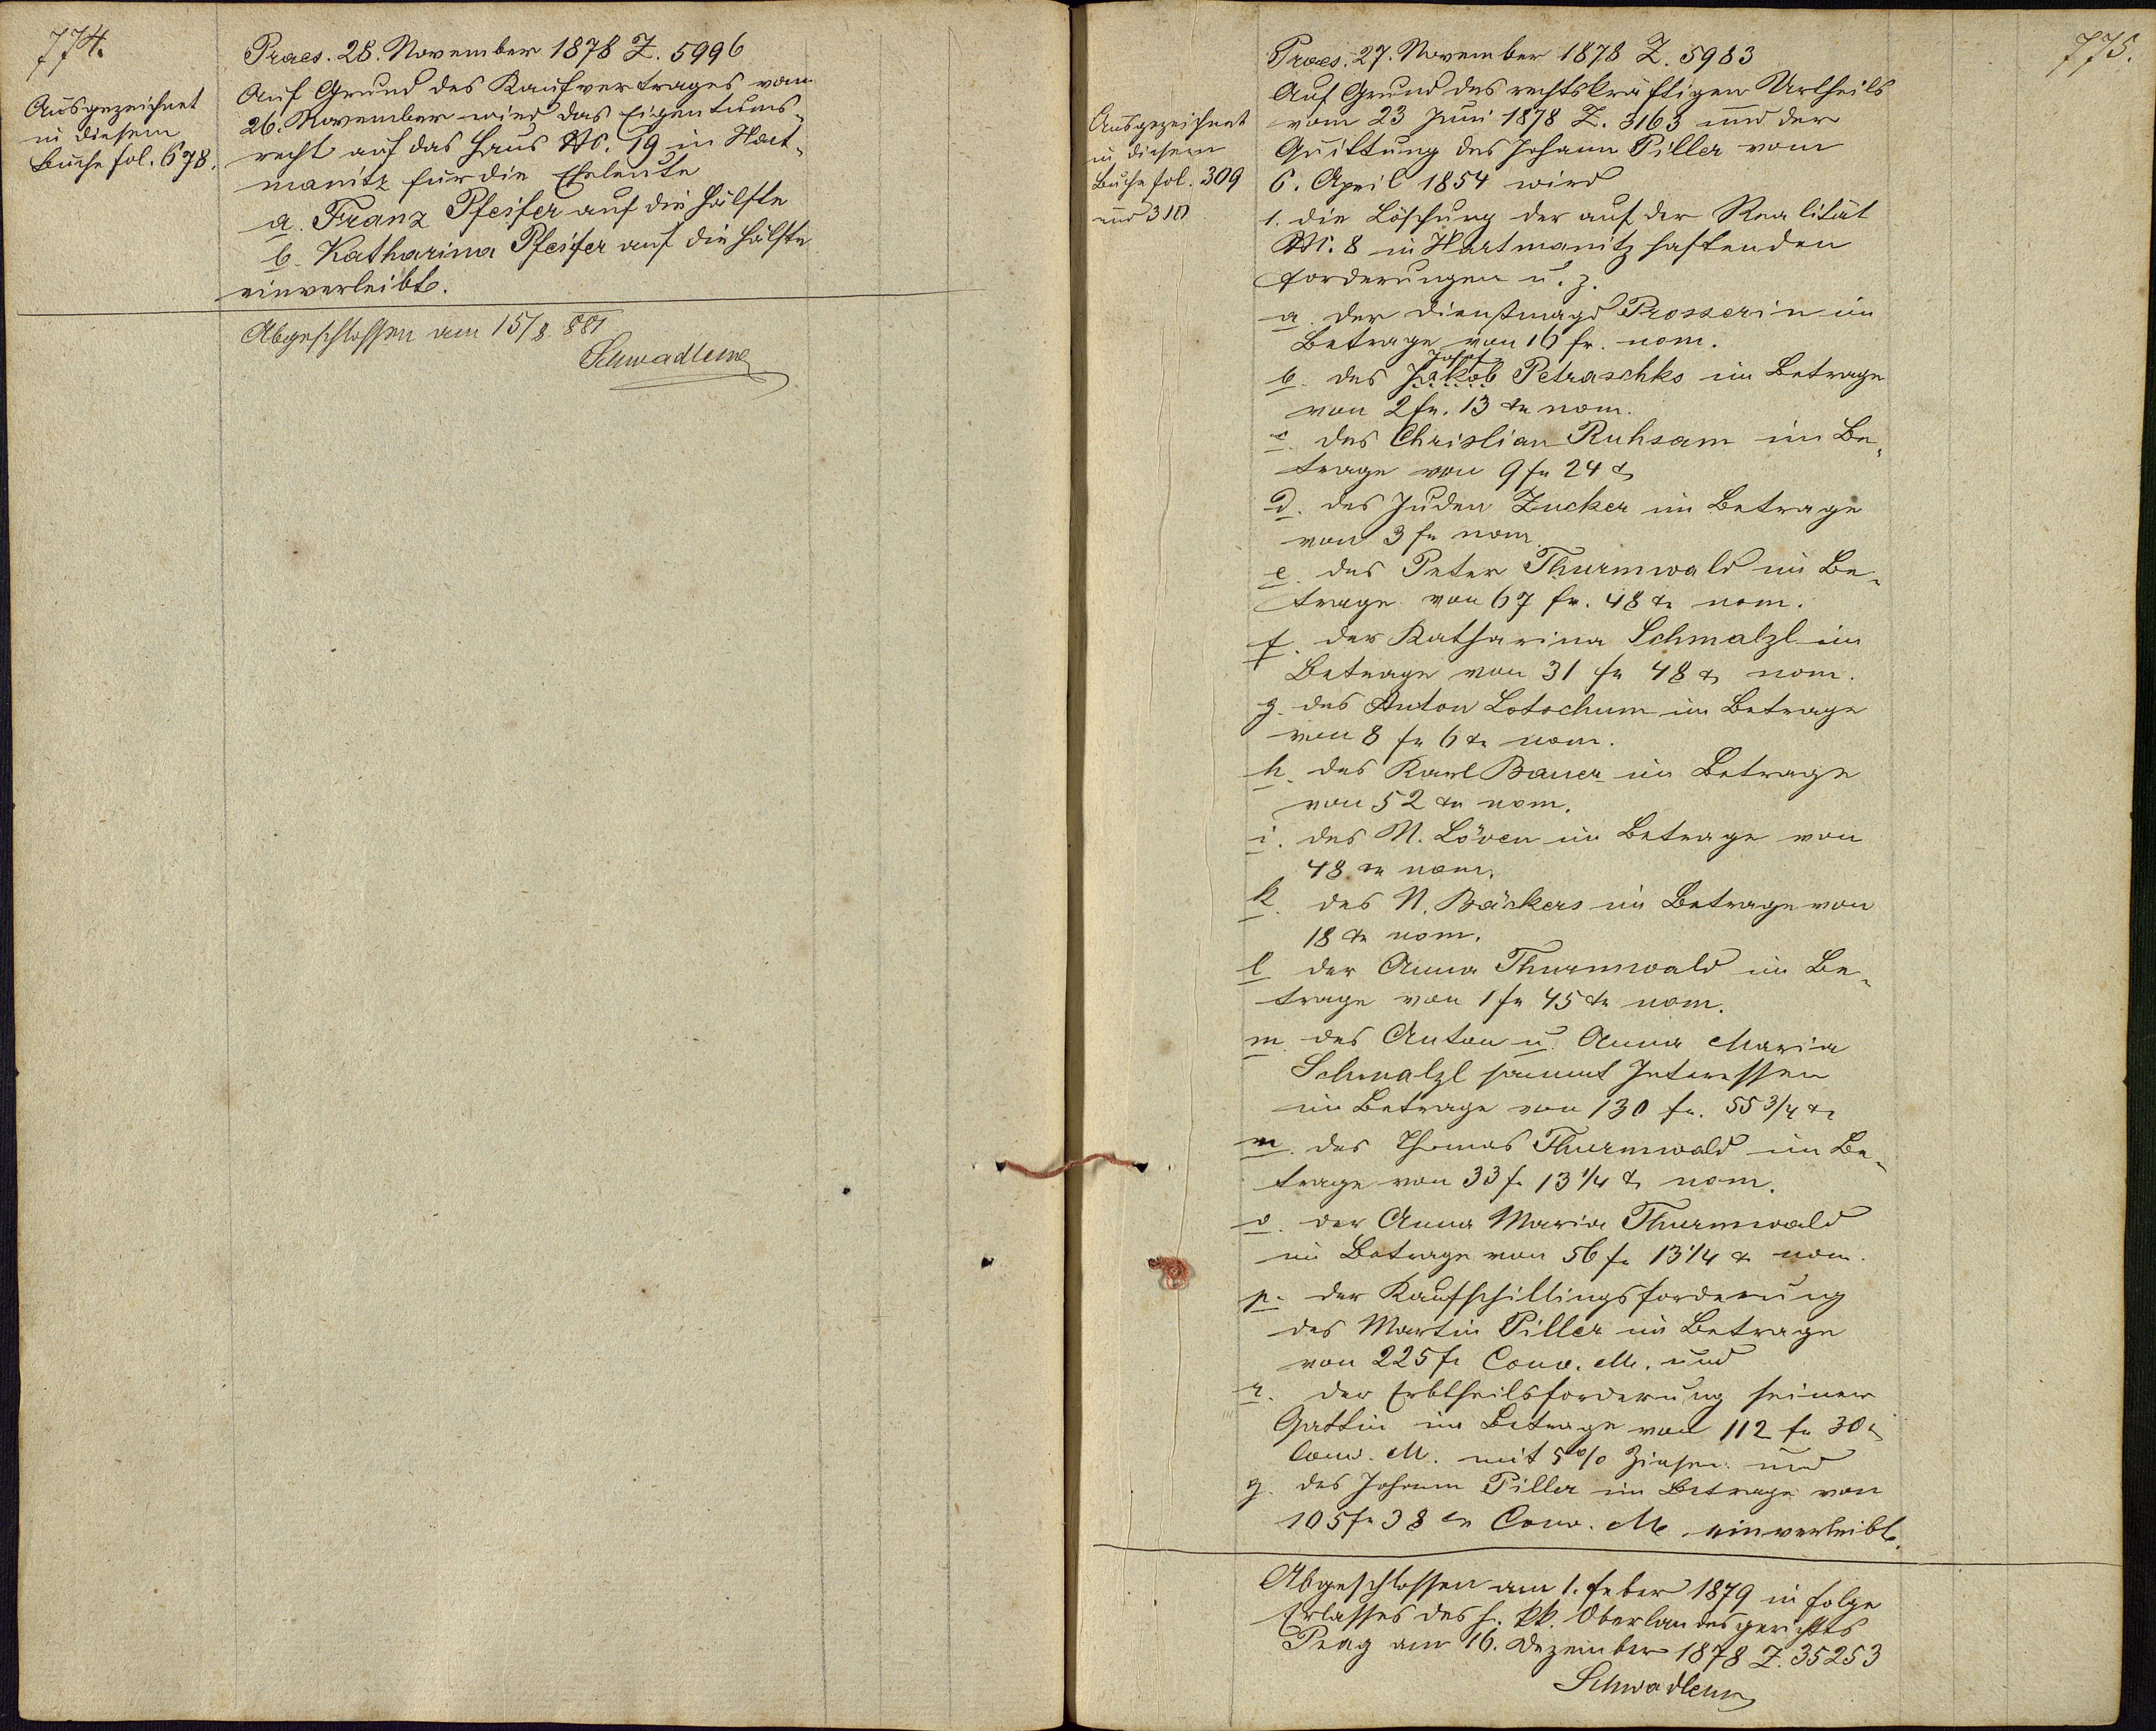 774.
Ausgezeichnet
in diesem
Buche fol. 678.
Praes. 28. November 1878 Z. 5996
Auf Grund des Kaufvertrages vom
26. November wird das Eigentums-
recht auf das Haus N. 19 in Hart-
manitz für die Eheleute
a. Franz Pfeifer auf die Hälfte
b. Katharina Pfeifer auf die Hälfte
einverleibt.
Abgeschlossen am 15/8. 881
775.
Ausgezeichnet
in diesem
Buche fol. 309
und 310
Praes. 27. November 1878 Z. 5983
Auf Grund des rechtskräftigen Urtheils
vom 23 Juni 1878 Z. 3163 und der
Quittung des Johann Piller vom
6. April 1854 wird
1. die Löschung der auf der Realität
N. 8 in Hartmanitz haftenden
Forderungen u. z.
a. der Dienstmagd Prosserin im
Betrage von 16 fr. nom.
Josef
b. des Jakob Petraschks im Betrage
von 2 fr. 13 xr nom.
c. des Christian Ruhsam im Be-
trage von 9 fr 24 xr
d. des Juden Zucker im Betrage
von 3 fr nom.
e. des Peter Thurmwald im Be-
trage von 67 fr. 48 xr nom.
f. der Katharina Schmalzl im
Betrage von 31 fr 48 xr nom.
g. des Anton Lotschum im Betrage
von 8 fr 6 xr nom.
h. des Karl Bauer im Betrage
von 52 xr nom.
i. des N. Löven im Betrage von
48 xr nom.
k. des N. Bäckers im Betrage von
18 xr nom.
l der Anna Thurmwald im Be-
trage von 1 fr 45 xr nom.
m. des Anton u. Anna Maria
Schmalzl sammt Interessen
im Betrage von 130 fr. 55 3/4 xr
n. des Thomas Thurmwald im Be-
trage von 33 fr 13 1/4 xr nom.
o. der Anna Maria Thurmwald
im Betrage von 56 fr 13 1/4 xr nom.
p. der Kaufschillingsforderung
des Martin Piller im Betrage
von 225 fr Conv. M. und
r. der Erbtheilsforderung seiner
Gattin im Betrage von 112 fr 30 xr
Conv. M. mit 5% Zinsen und
q. des Johann Piller im Betrage von
105 fr 38 xr Conv. M. einverleibt.
Abgeschlossen am 1. Feber 1879 in Folge
Erlasses des h. kk. Oberlandesgerichts
Prag am 16. Dezember 1878 Z. 35253